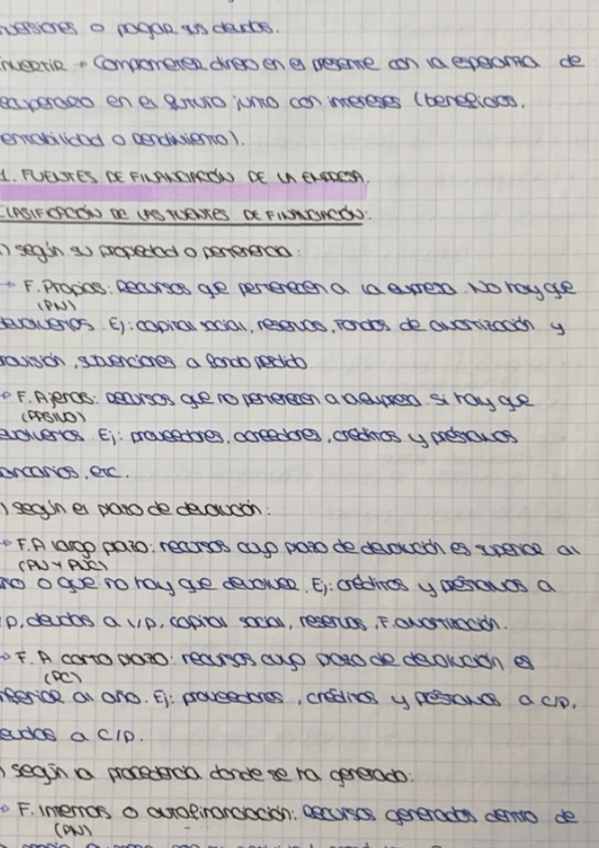 nversiones o pagar sus deudas.
nvertir → Comprometer dinero en el presente con la esperanza de
ecuperarlo en el futuro junto con intereses (beneficios,
entabilidad o rendimiento).
1. FUENTES DE FINANCIACIÓN DE LA EMPRESA.
CLASIFICACIÓN DE LAS FUENTES DE FINANCIACIÓN:
) según su propiedad o pertenencia:
→ F. Propias: Recursos que pertenecen a la empresa. No hay que
(PN)
devolverlos. Ej: capital social, reservas, fondos de amortización y
rovisión, subvenciones a fondo perdido.
→ F. Ajenas: Recursos que no pertenecen a la empresa. Si hay que
(PASIVO)
evolverlos. Ej: proveedores, acreedores, créditos y préstamos
ancarios, etc.
) según el plazo de devolución:
→ F. A largo plazo: recursos cuyo plazo de devolución es superior al
(PN y PNC)
ño o que no hay que devolver. Ej: créditos y préstamos a
P, deudas a L/P, capital social, reservas, F. amortización.
→ F. A corto plazo: recursos cuyo plazo de devolución es
(PC)
nferior al año. Ej: proveedores, créditos y préstamos a C/P,
eudas a C/P.
) según la procedencia donde se ha generado:
→ F. Internas o autofinanciación: Recursos generados dentro de
(PN)